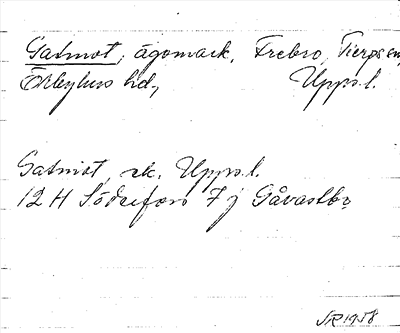 Gatmot, ägomark, Frebro, Tierps sn,
Örbyhus hd., Upps.l.
Gatmot, ek. Upps.l.
12 H Söderfors 7 j Gåvastbo
NR 1958